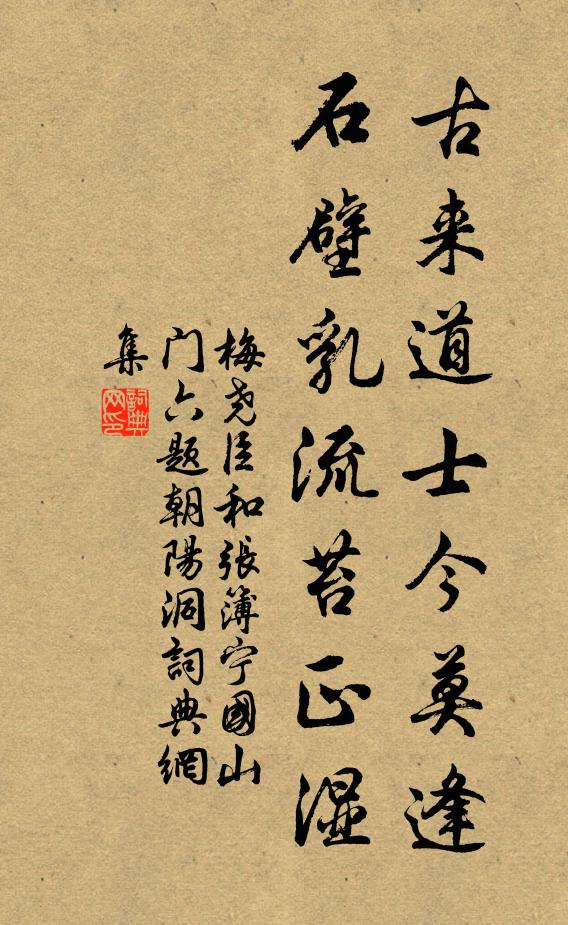 古来道士今莫逢
石壁乳流苔正湿
梅尧臣和張簿宁國山
门六题朝陽洞詞典網
集
詞典
网印